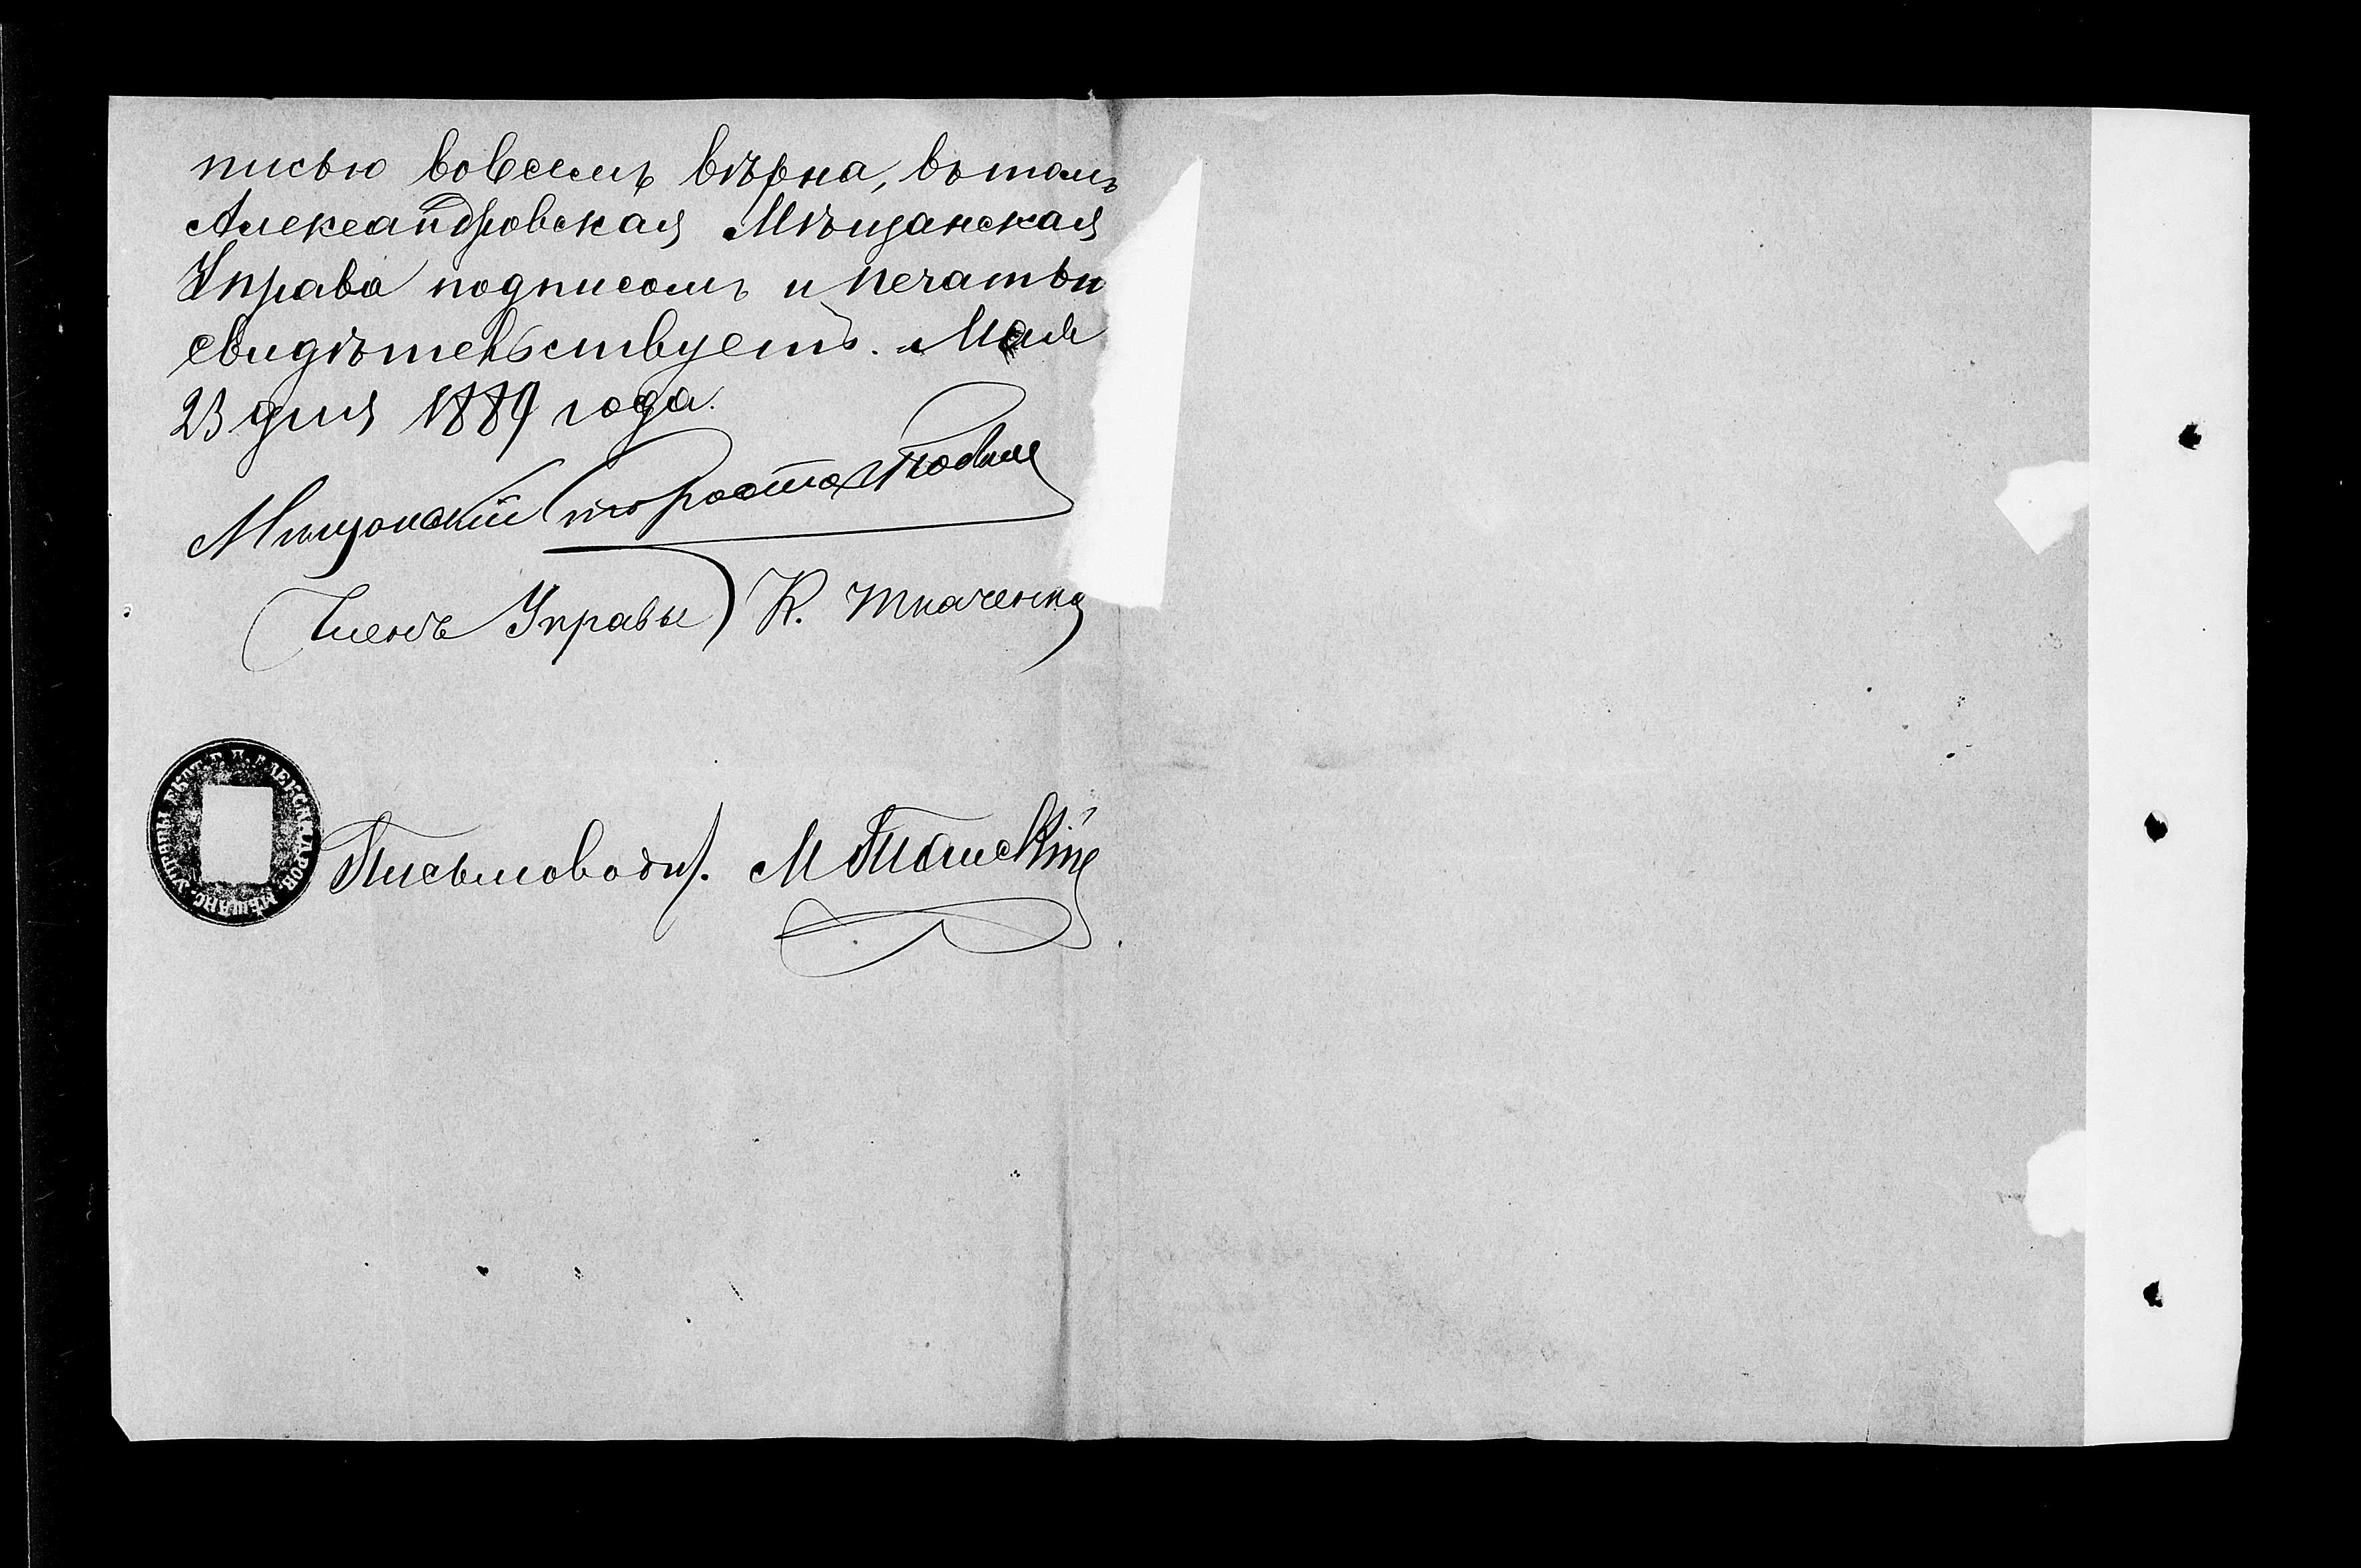 писью вовсемъ вѣрна, въ томъ
Александровская Мѣщанская
Управа подписомъ и печатью
свидѣтельствуетъ. Мая
23 дня 1889 года.
Мѣщанскій Староста
Членъ Управы К. Ткаченко
Письмоводит.
УПРАВЫ ЕКАТ. Г. АЛЕКСАНДРОВ. МѢЩАНС.